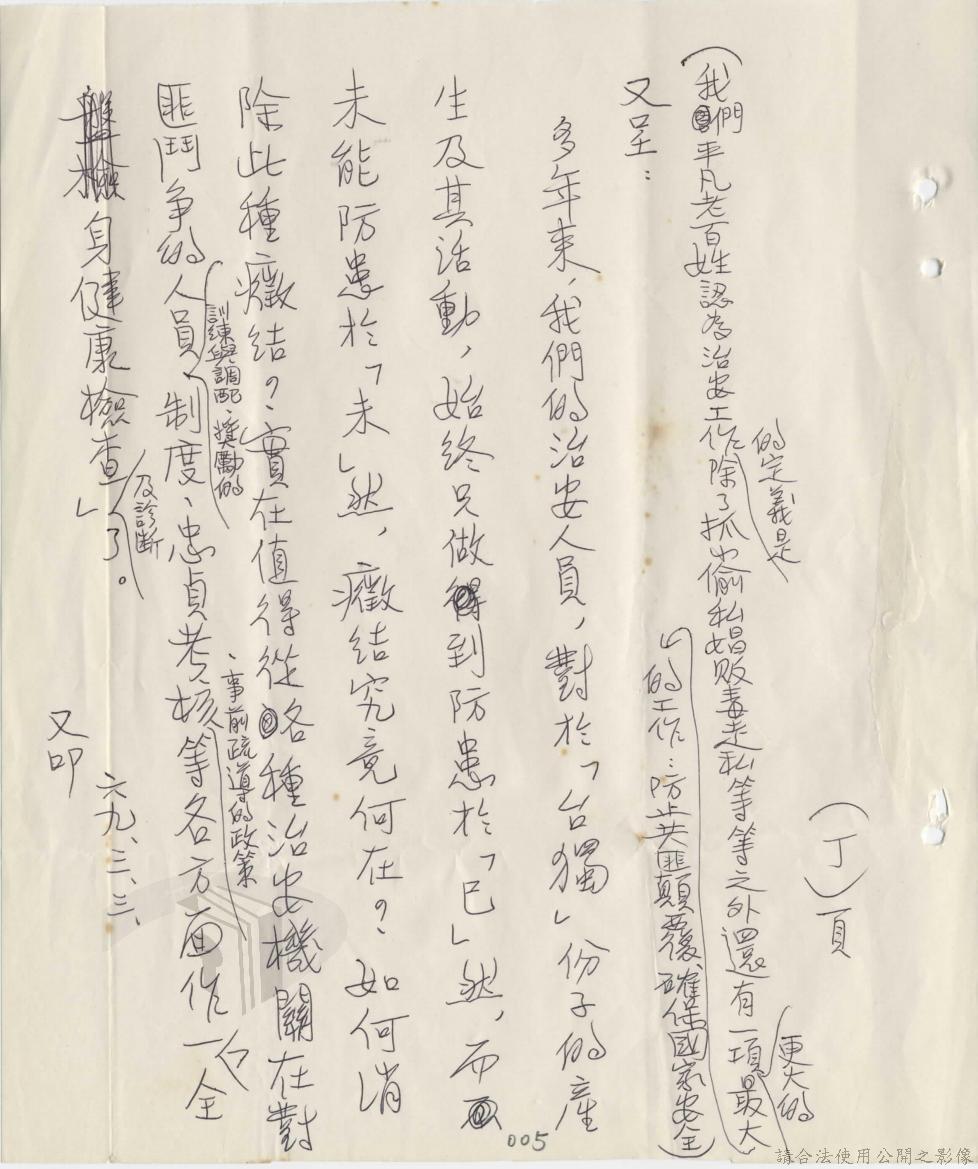 （丁）頁
更大的
的定義是
（我們平凡老百姓認為治安工作除了抓小偷私娼販毒走私等等之外還有一項最大
的工作：防止共匪顛覆確保國家安全）
又呈：
多年來，我們的治安人員，對於「台獨」份子的產
生及其活動，始終只做到防患於「已」然，而
未能防患於「未」然，癥結究竟何在？如何消
除此種癥結？實在值得從各種治安機關在對
訓練與調配、獎勵的
、事前疏導的政策
匪鬥爭的人員、制度、忠貞考核等各方面作一「全
及診斷
身健康檢查」了。
六九、三、三、
又叩
005
請合法使用公開之影像